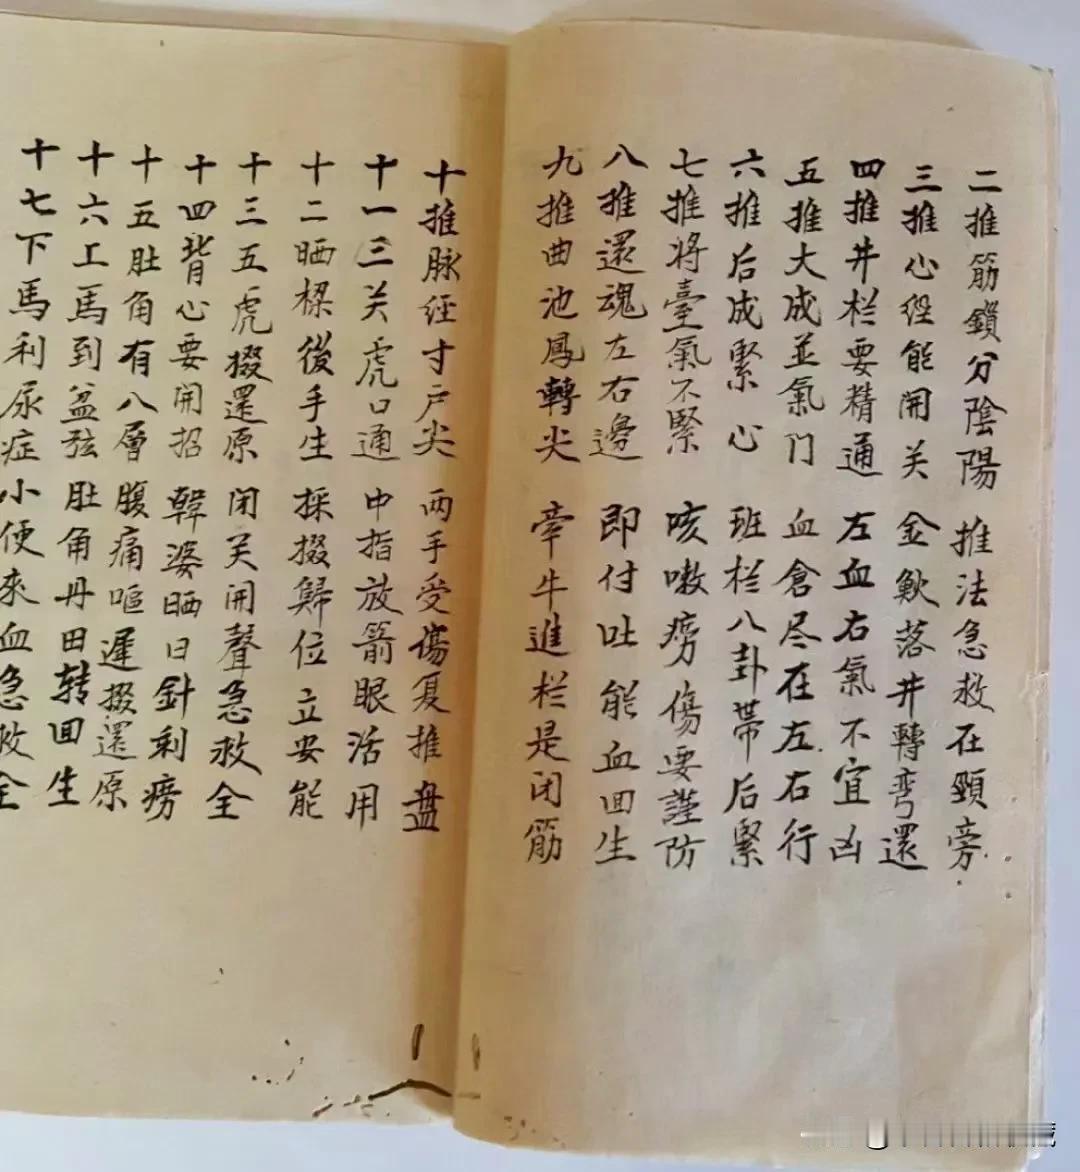 二推筋鎖分陰陽 推法急救在頸旁
三推心經能開关 金鰍落井轉弯還
四推井栏要精通 左血右氣不宜凶
五推大成並氣门 血倉尽在左右行
六推后成緊心 班栏八卦带后緊
七推将臺氣不緊 咳嗽痨傷要謹防
八推還魂左右邊 即付吐能血回生
九推曲池鳳轉尖 牵牛進栏是闭筋
十推脉經寸戸尖 两手受傷复推盘
十一三关虎口通 中指放箭眼活用
十二晒樑後手生 採掇歸位立安能
十三五虎掇還原 闭关開聲急救全
十四背心要開招 韓婆晒日針刺痨
十五肚角有八層 腹痛嘔遲掇還原
十六工馬到盆弦 肚角丹田转回生
十七下馬利尿症 小便來血急救全